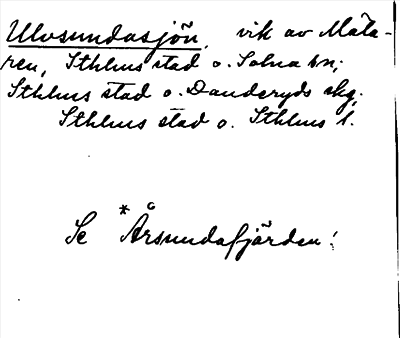 Ulvsundasjön, vik av Mäla-
ren, Sthlms stad o. Solna sn;
Sthlms stad o. Danderyds skg;
Sthlms stad o. Sthlms l.
Se *Årsundafjärden!